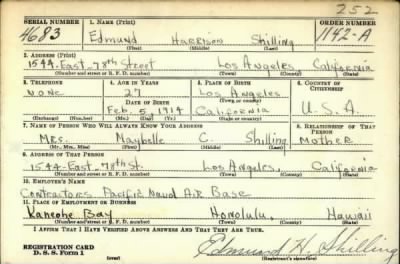 252
SERIAL NUMBER 1. NAME (Print) ORDER NUMBER
4683 Edmund HARRISON Shilling 1142-A
(First) (Middle) (Last)
2. ADDRESS (Print)
1544-East-78th Street Los Angeles California
(Number and street or R. F. D. number) (Town) (County) (State)
3. TELEPHONE 4. AGE IN YEARS 5. PLACE OF BIRTH 6. COUNTRY OF CITIZENSHIP
NONE 27 Los Angeles
DATE OF BIRTH (Town or county)
Feb. 5 1914 California U.S.A.
(Exchange) (Number) (Mo.) (Day) (Yr.) (State or country)
7. NAME OF PERSON WHO WILL ALWAYS KNOW YOUR ADDRESS 8. RELATIONSHIP OF THAT PERSON
Mrs. Maybelle Shilling Mother
(Mr., Mrs., Miss) (First) (Middle) (Last)
9. ADDRESS OF THAT PERSON
1544-East-78th St. Los Angeles, California
(Number and street or R. F. D. number) (Town) (County) (State)
10. EMPLOYER'S NAME
Contractors Pacific Naval Air Base
11. PLACE OF EMPLOYMENT OR BUSINESS
Kaneohe Bay Honolulu, Hawaii
(Number and street or R. F. D. number) (Town) (County) (State)
I AFFIRM THAT I HAVE VERIFIED ABOVE ANSWERS AND THAT THEY ARE TRUE.
REGISTRATION CARD
D. S. S. FORM 1 (over) Edmund H. Shilling
(Registrant's signature)